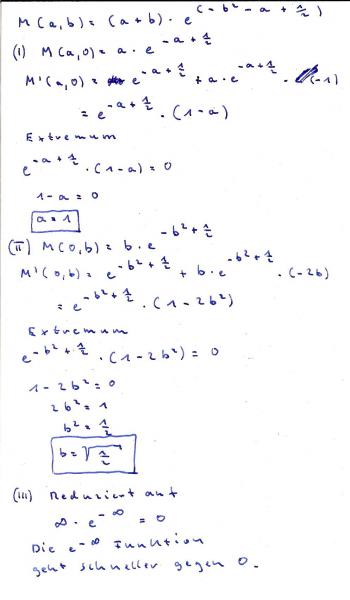 M(a,b) = (a+b) · e^(-b²-a+1/2)
(i) M(a,0) = a · e^(-a+1/2)
M'(a,0) = e^(-a+1/2) + a · e^(-a+1/2) · (-1)
= e^(-a+1/2) · (1-a)
Extremum
e^(-a+1/2) · (1-a) = 0
1-a = 0
a = 1
(ii) M(0,b) = b · e^(-b²+1/2)
M'(0,b) = e^(-b²+1/2) + b · e^(-b²+1/2) · (-2b)
= e^(-b²+1/2) · (1-2b²)
Extremum
e^(-b²+1/2) · (1-2b²) = 0
1-2b² = 0
2b² = 1
b² = 1/2
b = √(1/2)
(iii) Reduziert auf
∞ · e^(-∞) = 0
Die e^(-∞) Funktion
geht schneller gegen 0.